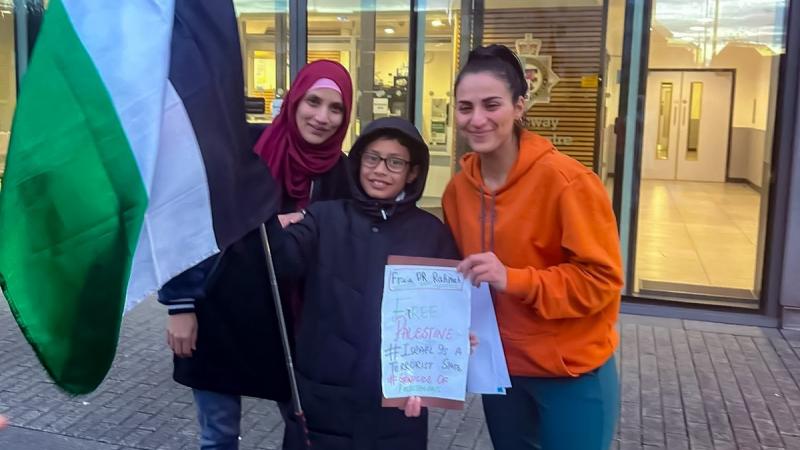 way
Free DR Rahmeh
FREE
PALESTINE
# ISRAEL IS A
TERRORIST STATE
# GENOCIDE OF